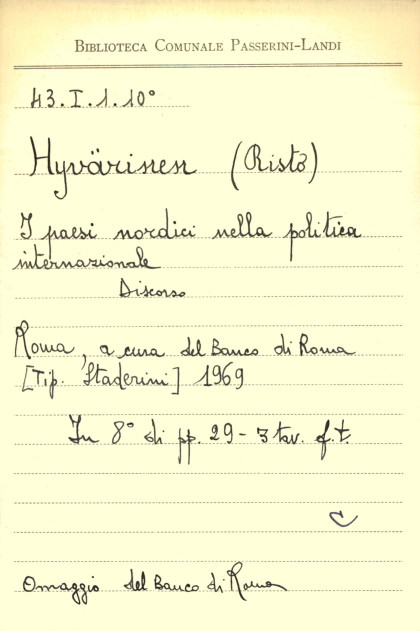 BIBLIOTECA COMUNALE PASSERINI-LANDI
43.I.1.10°
Hyvärinen (Risto)
I paesi nordici nella politica
internazionale
Discorso
Roma, a cura del Banco di Roma
[Tip. Staderini] 1969
In 8° di pp. 29 - 3 tav. f.t.
C
Omaggio del Banco di Roma